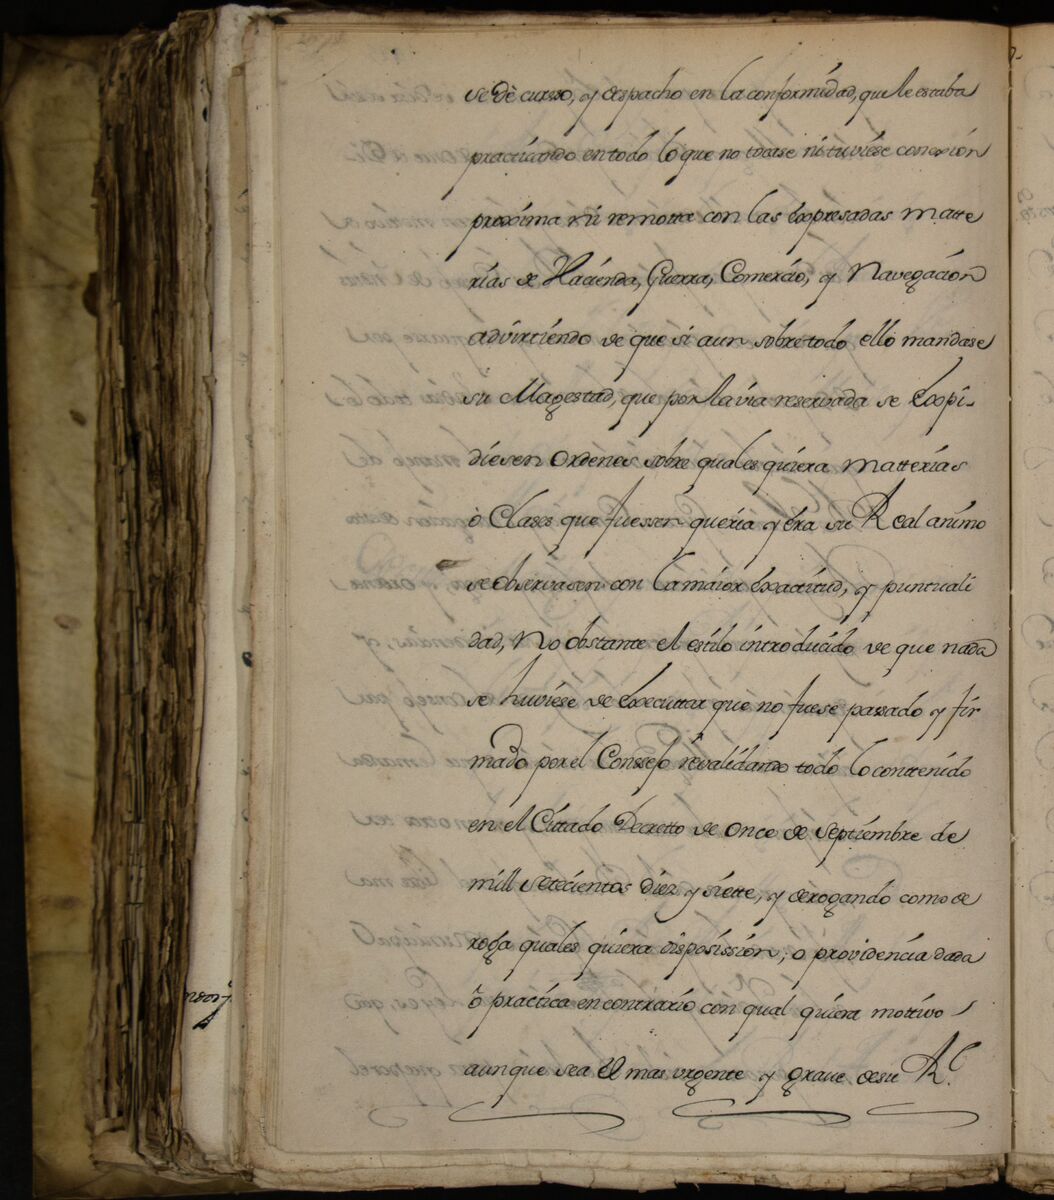 se dè curso, y despacho en la conformidad, que le estaba
practicando en todo lo que no tocase ni tuviése conexión
proxima ni remotta con las expresadas matte
rias de Haciénda, Guerra, Comercio, y Navegación
advirtiéndo de que si aun sobre todo ello mandase
su Magestad, que por la via reservada se expi-
diesen ordenes sobre quales quiera matterias
ò Clases que fuessen queria y era su Real animo
se observasen con la maior exactitud, y puntuali
dad, No obstante el estilo introducido de que nada
se huviése de executtar que no fuese passado y fir
mado por el Conssejo revalidando todo lo conttenido
en el Cittado Decretto de once de septiembre de
mill settecientos diez y siette, y derogando como de
roga quales quiera disposissión, o providencia dada
ô practica en contrario con qual quiera mottivo
aunque sea el mas urgente y grave de su Rl.